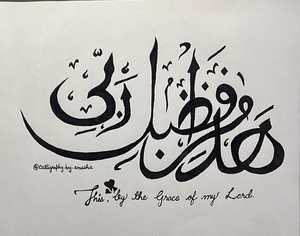 هذا من فضل ربّي
@Calligraphy by
This, by the Grace of my Lord.